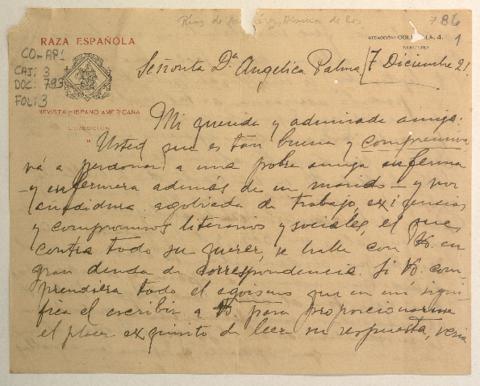 Ríos de Lampérez, Blanca de los
786
1
RAZA ESPAÑOLA
CO-AP1
CAJ: 3
DOC: 793
FOL: 3
REVISTA HISPANO AMERICANA
DIRECCIÓN
Señorita Dª Angélica Palma / 7 Diciembre 21.
Mi querida y admirada amiga:
Usted que es tan buena y comprensiva
vá a perdonar a una pobre amiga enferma
—y enfermera además de un marido— y por
añadidura agobiada de trabajo, exigencias
y compromisos literarios y sociales, el que
contra todo su querer, se halle con V. en
gran deuda de correspondencia. Si V. com-
prendiera todo el egoismo que en mi signi-
fica el escribir a V. para proporcionarme
el placer exquisito de leer su respuesta, vería